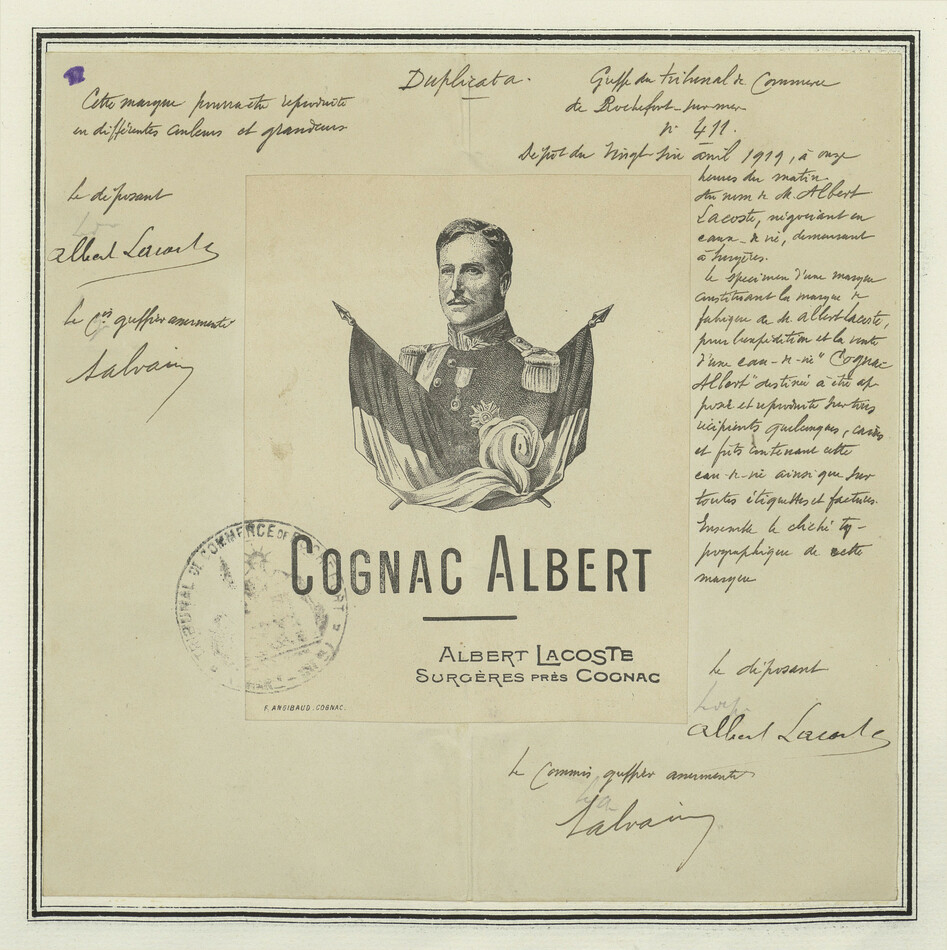 Duplicata.
Cette marque pourra être reproduite
en différentes couleurs et grandeurs
Greffe du tribunal de Commerce
de Rochefort-sur-mer
n° 411.
Dépôt du vingt-six avril 1919, à onze
heures du matin.
Au nom de M. Albert
Lacoste, négociant en
eaux-de-vie, demeurant
à Surgères.
Le specimen d'une marque
constituant la marque de
fabrique de M. Albert Lacoste,
pour l'expédition et la vente
d'une eau-de-vie "Cognac
Albert" destinée à être ap-
posée et reproduite sur tous
récipients quelconques, caisses
et fûts contenant cette
eau-de-vie ainsi que sur
toutes étiquettes et factures.
Ensemble le cliché ty-
pographique de cette
marque
le déposant
Albert Lacoste
le Cis greffier assermenté
COGNAC ALBERT
ALBERT LACOSTE
SURGÈRES PRÈS COGNAC
F. ANGIBAUD. COGNAC.
TRIBUNAL DE COMMERCE DE ROCHEFORT
le déposant
Albert Lacoste
le Commis greffier assermenté